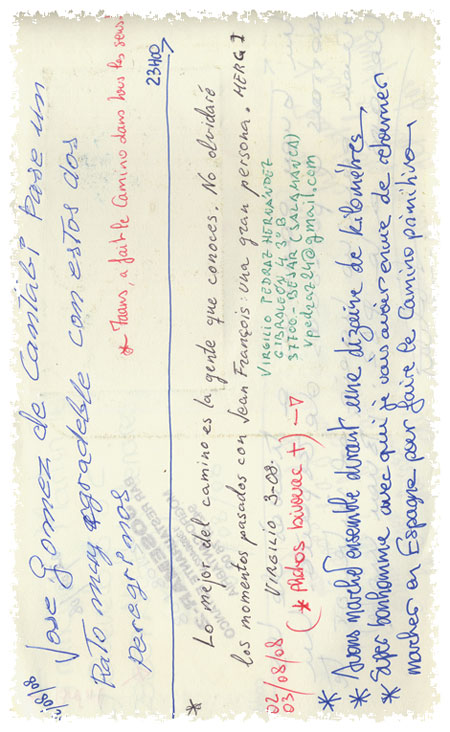 Jose Gomez de Cantabi Pase um
Rato muy agradable com estos dos
peregrinos
a fait le Camino dans tous les sens!
23H00 →
* Lo mejor del camino es la gente que conoces. No olvidaré
los momentos pasados con Jean François: una gran persona.
VIRGILIO 3-08.
VIRGILIO PEDRAZ HERNÁNDEZ
GIBRALEÓN 4 3º B
37700 - BEJAR (SALAMANCA)
02
03/08/08 (* Photos bivouac +)
* Avons marché ensemble durant une dizaine de kilomètres
* Super bonhomme avec qui je vais avoir envie de retourner
* marcher en Espagne pour faire le Camino primitivo